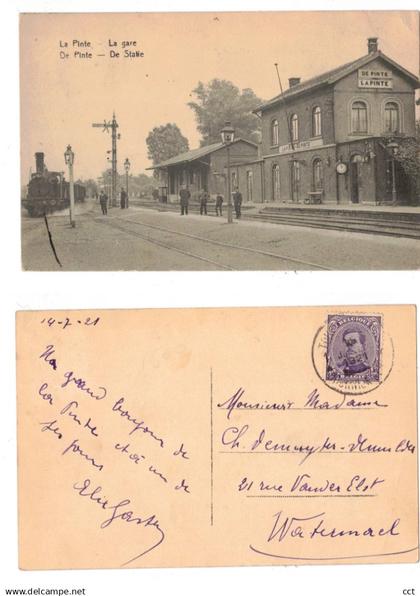 La Pinte — La gare
De Pinte — De Statie
DE PINTE
LA PINTE
14-7-21
Un grand bonjour de
La Pinte et à un de
ses jours
BELGIQUE
BELGIË
Monsieur Madame
Ch.
21 rue Vander Elst
Watermael
www.delcampe.net
cct